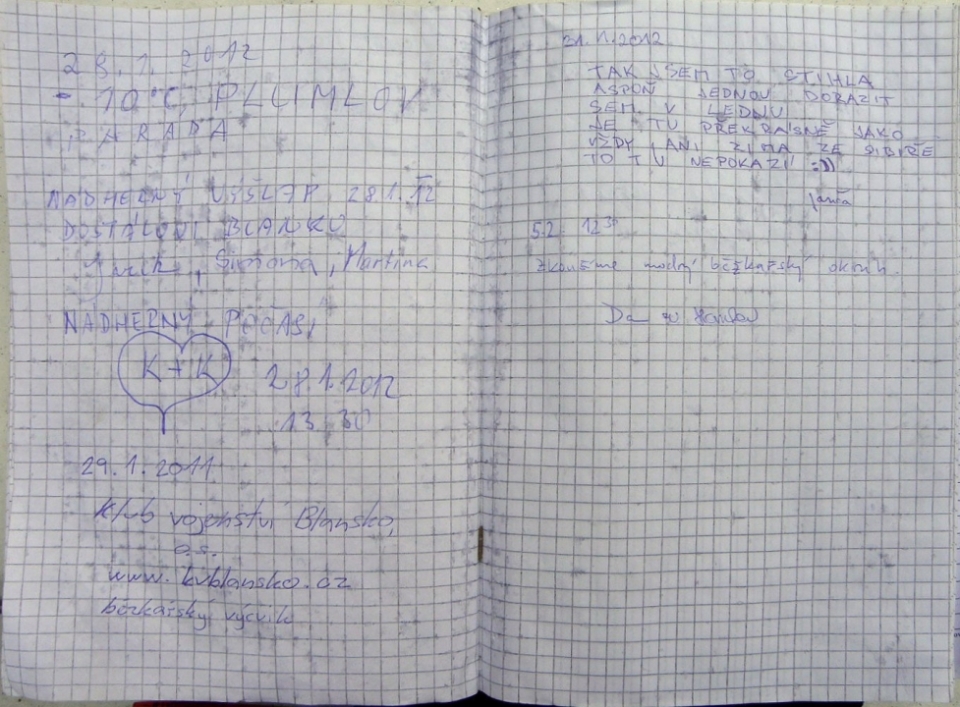 28.1.2012
-10°C, PLUMLOV
PARÁDA
NÁDHERNÝ VÝŠLAP 28.1.12
DOSTÁLOVI BLANKŮ
Jurik, Simona, Martina
NÁDHERNÝ POČASÍ
K+K
28.1.2012
13.30
29.1.2011
Klub vojenství Blansko,
o.s.
www.kvblansko.cz
běžkařský výcvik
31.1.2012
TAK JSEM TO STIHLA
ASPOŇ JEDNOU DORAZIT
SEM V LEDNU
JE TU PŘEKRÁSNĚ JAKO
VŽDY, ANI ZIMA ZE SIBIŘE
TO TU NEPOKAZÍ! :=))
Jana
5.2 12
zkoušíme modrý běžkařský okruh.